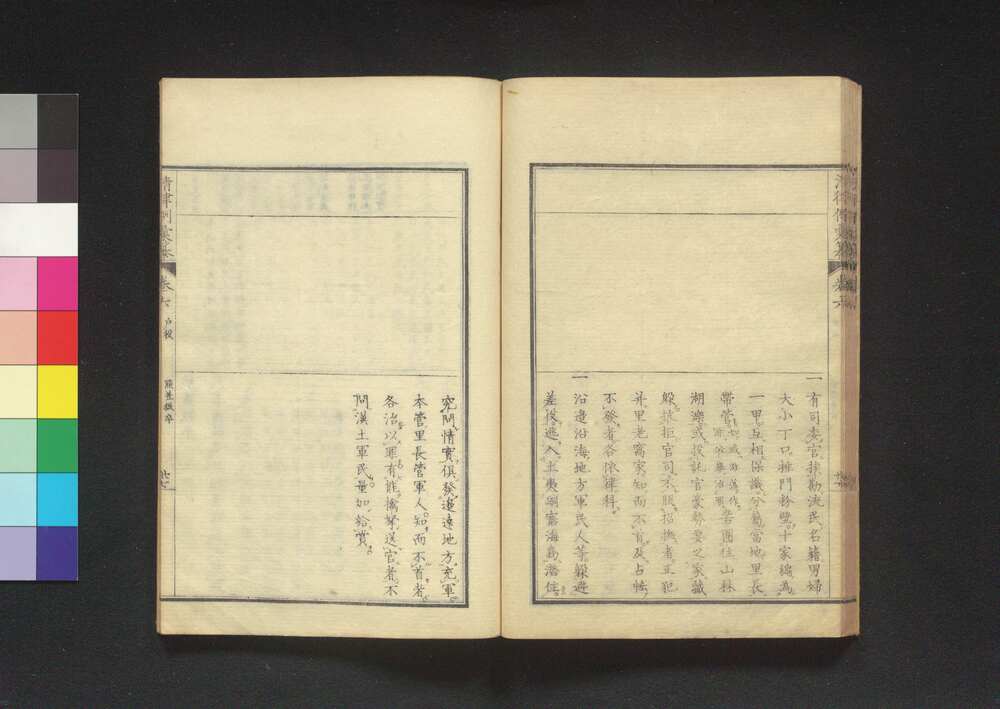 一有司委官挨勘流民名籍男婦
大小丁口排門粉壁十家編為
一甲互相保識分屬當地里長
帶管
若團住山林
湖濼或投託官豪勢要之家藏
躲抗拒官司不服招撫者正犯
并里老窩家知而不首及占恡
不發者各依律科
一沿邊沿海地方軍民人等躲避
差役逃入土夷峒寨海島潛住
究問情實俱發邊遠地方充軍
本管里長管軍人知而不首者
各治以罪有能擒拏送官者不
問漢土軍民量加給賞
卷七
戶役